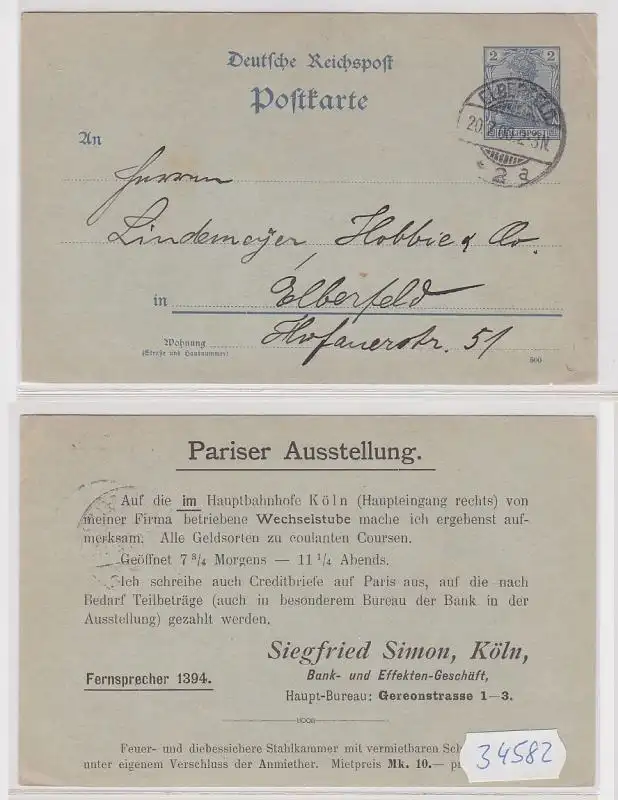 Deutsche Reichspost
Postkarte
2 2
REICHSPOST
ELBERFELD
2 a
An
Herren
Lindemeyer Hobbie & Co.
in Elberfeld
Hofauerstr. 51
Wohnung
(Straße und Hausnummer)
Pariser Ausstellung.
Auf die im Hauptbahnhofe Köln (Haupteingang rechts) von
meiner Firma betriebene Wechselstube mache ich ergebenst auf-
merksam. Alle Geldsorten zu coulanten Coursen.
Geöffnet 7 3/4 Morgens — 11 1/4 Abends.
Ich schreibe auch Creditbriefe auf Paris aus, auf die nach
Bedarf Teilbeträge (auch in besonderem Bureau der Bank in der
Ausstellung) gezahlt werden.
Siegfried Simon, Köln,
Bank- und Effekten-Geschäft,
Fernsprecher 1394.
Haupt-Bureau: Gereonstrasse 1—3.
Feuer- und diebessichere Stahlkammer mit vermietbaren
unter eigenem Verschluss der Anmiether. Mietpreis Mk. 10.—
34582